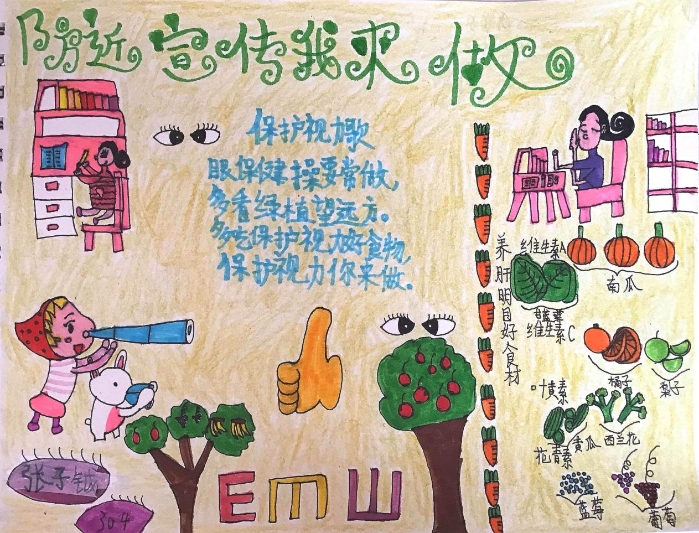 防近宣传我来做
保护视力歌
眼保健操要常做,
多看绿植望远方。
多吃保护视力好食物,
保护视力你来做。
养肝明目好食材
维生素A
南瓜
维生素C
橘子
梨子
叶黄素
黄瓜
西兰花
花青素
蓝莓
葡萄
张子
304
E m Ш